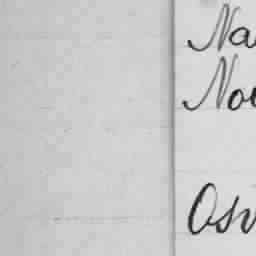 Na
Nov
Osv